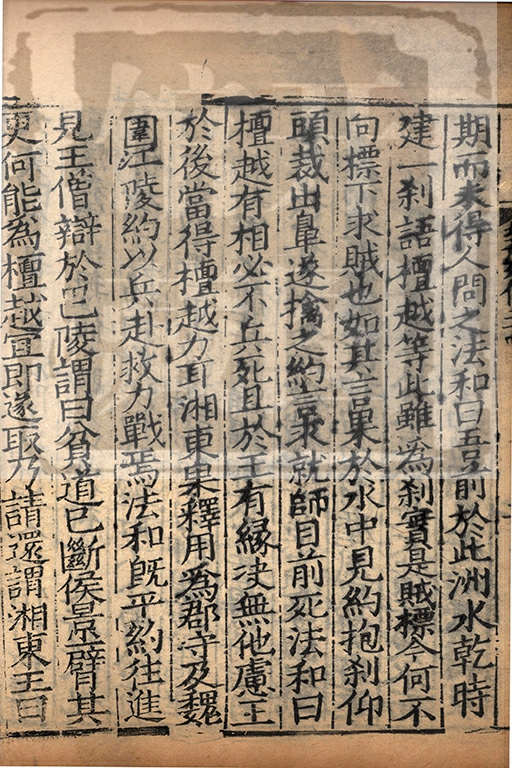 期而未得人問之法和曰吾前於此洲水乾時
建一刹語檀越等此雖為刹實是賊標今何不
向標下求賊也如其言果於水中見約抱刹仰
頭裁出鼻遂擒之約言求就師目前死法和曰
檀越有相必不兵死且於王有緣决無他慮王
於後當得檀越力耳湘東果釋用為郡守及魏
圍江陵約以兵赴救力戰焉法和既平約往進
見王僧辯於巴陵謂曰貧道已斷侯景一臂其
更何能為檀越宜即遂取乃請還謂湘東王曰